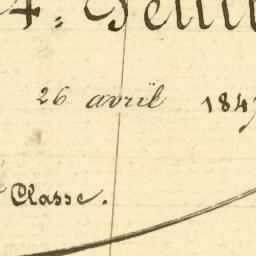 4.
26 avril 184
Classe.